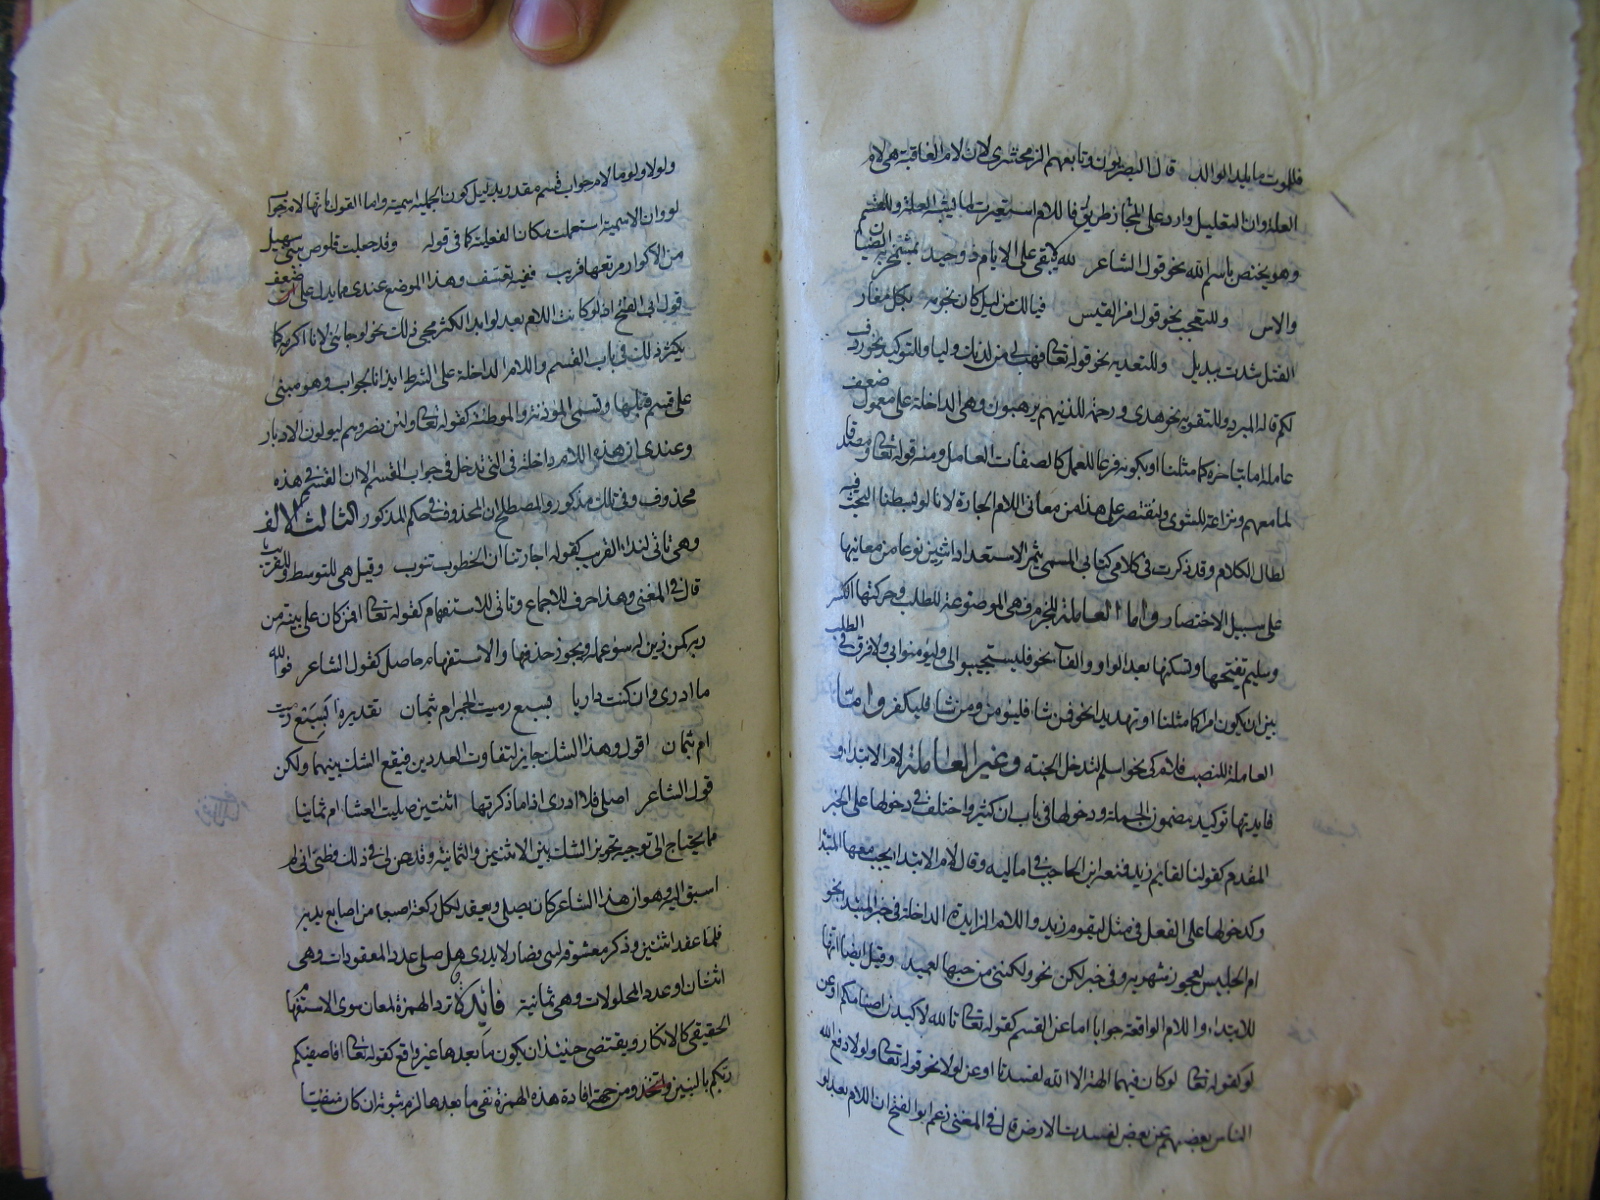 فللموت ما يلد الوالد قال البصريون وتابعهم الزمخشري لان لام العاقبة هي لام
العلة وان التعليل وارد على المجاز طريق فاللام استعيرت لما يشبه العلة وللقسم
وهو يختص باسم الله نحو قول الشاعر لله لا يبقى على الايام ذو حيد بمشمخر به الضيان
والاس وللتعجب نحو قول امرا القيس فيالك من ليل كان نجومه بكل مغار
الفتل شدت بيذبل وللتعديه نحو قوله تعالى فهب لي من لدنك وليا وللتوكيد نحو ردف
لكم قاله المبرد وللتقويه نحو هدى ورحمة للذين هم يرهبون وهي الداخلة على معمول ضعف
عامله اما بتاخره كما مثلنا او بكونه فرعا للعمل كالصفات العامل ومنه قوله تعالى مصدقا
لما معهم ونزاعة للشوى ولنقتصر على هذا من معاني اللام الجارة لانا لو بسطنا البحث فيه
لطال الكلام وقد ذكرت في كلامي كتابي المسمى بثمر الاستعداد اثنين نوعا من معانيها
على سبيل الاختصار واما العاملة للجزم فهي الموضوعة للطلب وحركتها الكسر
وسليم تفتحها وتسكنها بعد الواو والفاء نحو فليستجيبوا لي وليؤمنوا بي ولا فرق في الطلب
بين ان يكون امرا كما مثلنا او تهديدا نحو فمن شا فليؤمن ومن شا فليكفر واما
العاملة للنصب فلام كي نحو اسلم لتدخل الجنة وغير العاملة لام الابتداء و
فايدتها توكيد مضمون الجملة ودخولها في باب ان كثير واختلف في دخولها على الخبر
المقدم كقولنا لقايم زيد فمنعه ابن الحاجب في اماليه وقال لام الابتدا يجب معها المبتدا
وكدخولها على الفعل في مثل ليقوم زيد واللام الزايدة الداخلة في خبر المبتدا نحو
ام الحليس لعجوز شهربه وفي خبر لكن نحو ولكنني من حبها لعميد وقيل ايضا انها
للابتداء واللام الواقعة جوابا اما عن القسم كقوله تعالى تالله لاكيدن اصنامكم او عن
لو كقوله تعالى لو كان فيهما الهة الا الله لفسدتا او عن لولا نحو قوله تعالى ولولا دفع الله
الناس بعضهم ببعض لفسدت الارض قال في المغني زعم ابو الفتح ان اللام بعد لو
ولولا ولوما لام جواب قسم مقدر بدليل كون الجملة اسمية واما القول بانها لام جواب
لو وان الاسمية استعملت مكان الفعلية كما في قوله وقد جعلت قلوص بني سهيل
من الاكوار مرتعها قريب ففيه تعسف وهذا الموضع عندي مما يدل على ضعف
قول ابي الفتح اذ لو كانت اللام بعد لو ابدا لكثر مجي ذلك نحو لو جاءني لانا اكرمه كما
يكثر ذلك في باب القسم واللام الداخلة على الشرط ايذانا بالجواب وهو مبني
على قسم قبلها وتسمى الموذنة والموطئة كقوله تعالى ولئن نصروهم ليولون الادبار
وعندي ان هذه اللام داخلة في التي تدخل في جواب القسم الا ان القسم في هذه
محذوف وفي تلك مذكور والمصطلح ان المحذوف في حكم المذكور الثالث الالف
وهي تاتي لنداء القريب كقوله اجارتنا ان الخطوب تنوب وقيل هي للتوسط وللقريب يا
قال في المغني وهذا خرق للاجماع وتاتي للاستفهام كقوله تعالى افمن كان على بينة من
ربه كمن زين له سوء عمله ويجوز حذفها والاستفهام حاصل كقول الشاعر فوالله
ما ادري وان كنت داريا بسبع رميت الجمرام بثمان تقديره ابسبع رميت
ام بثمان اقول وهذا الشك جايز لتفاوت العددين فيقع الشك بينهما ولكن
قول الشاعر اصلي فلا ادري اذا ما ذكرتها اثنتين صليت العشا ام ثمانيا
مما يحتاج الى توجيه تجويز الشك بين الاثنتين والثمانية وقد عن لي في ذلك وظني اني لم
اسبق اليه وهو ان هذا الشاعر كان يصلي ويعقد لكل ركعة اصبعا من اصابع يديه
فلما عقد اثنتين وذكر معشوقه نسى فصار لا يدري هل صلى عدد المعقودات وهي
اثنتان او عدد المحلولات وهي ثمانية فائدة ترد الهمزة لمعان سوى الاستفهام
الحقيقي كالانكار ويقتضي حينئذ ان يكون ما بعدها غير واقع كقوله تعالى افاصفيكم
ربكم بالبنين واتخذ ومن جهة افادة هذه الهمزة نفي ما بعدها لزم ثبوته ان كان منفيا